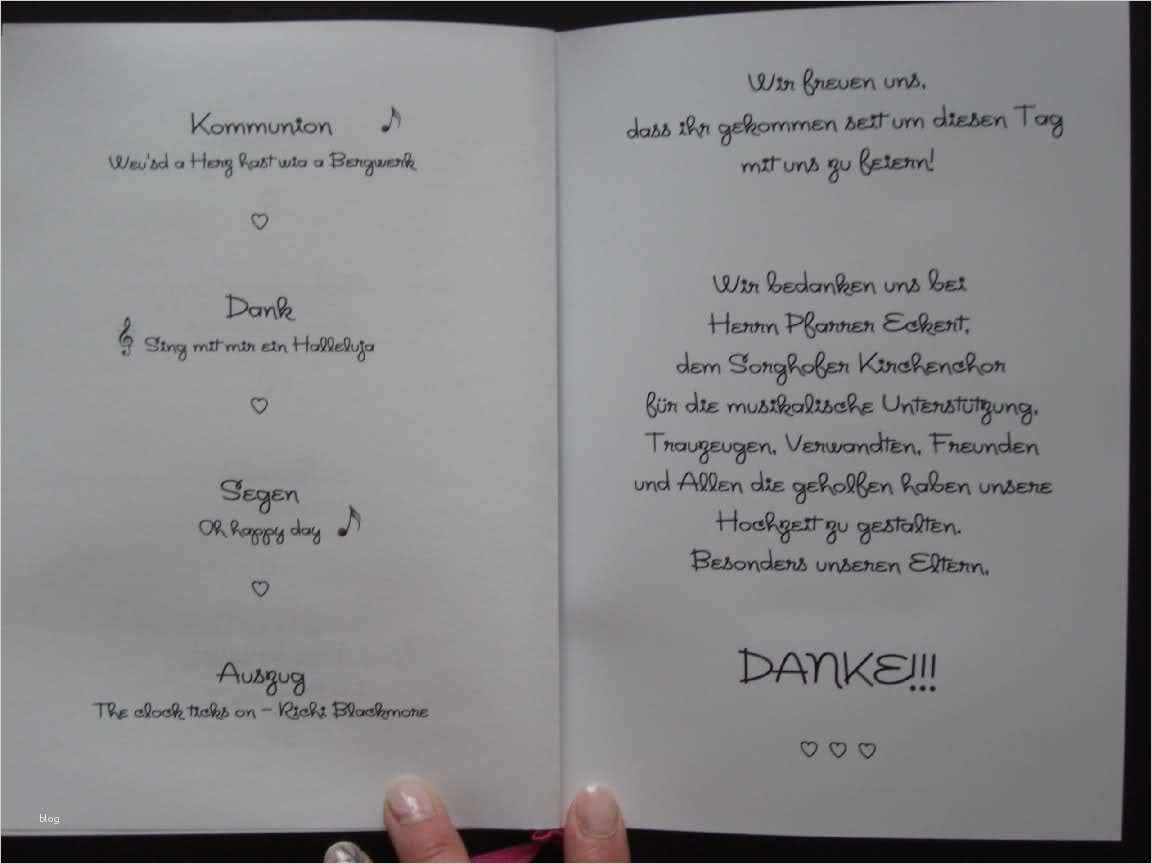 Kommunion
Weu'sd a Herz hast wia a Bergwerk
Dank
Sing mit mir ein Halleluja
Segen
Oh happy day
Auszug
The clock ticks on - Richi Blackmore
Wir freuen uns,
dass ihr gekommen seit um diesen Tag
mit uns zu feiern!
Wir bedanken uns bei
Herrn Pfarrer Eckert,
dem Sorghofer Kirchenchor
für die musikalische Unterstützung,
Trauzeugen, Verwandten, Freunden
und Allen die geholfen haben unsere
Hochzeit zu gestalten.
Besonders unseren Eltern.
DANKE!!!
blog